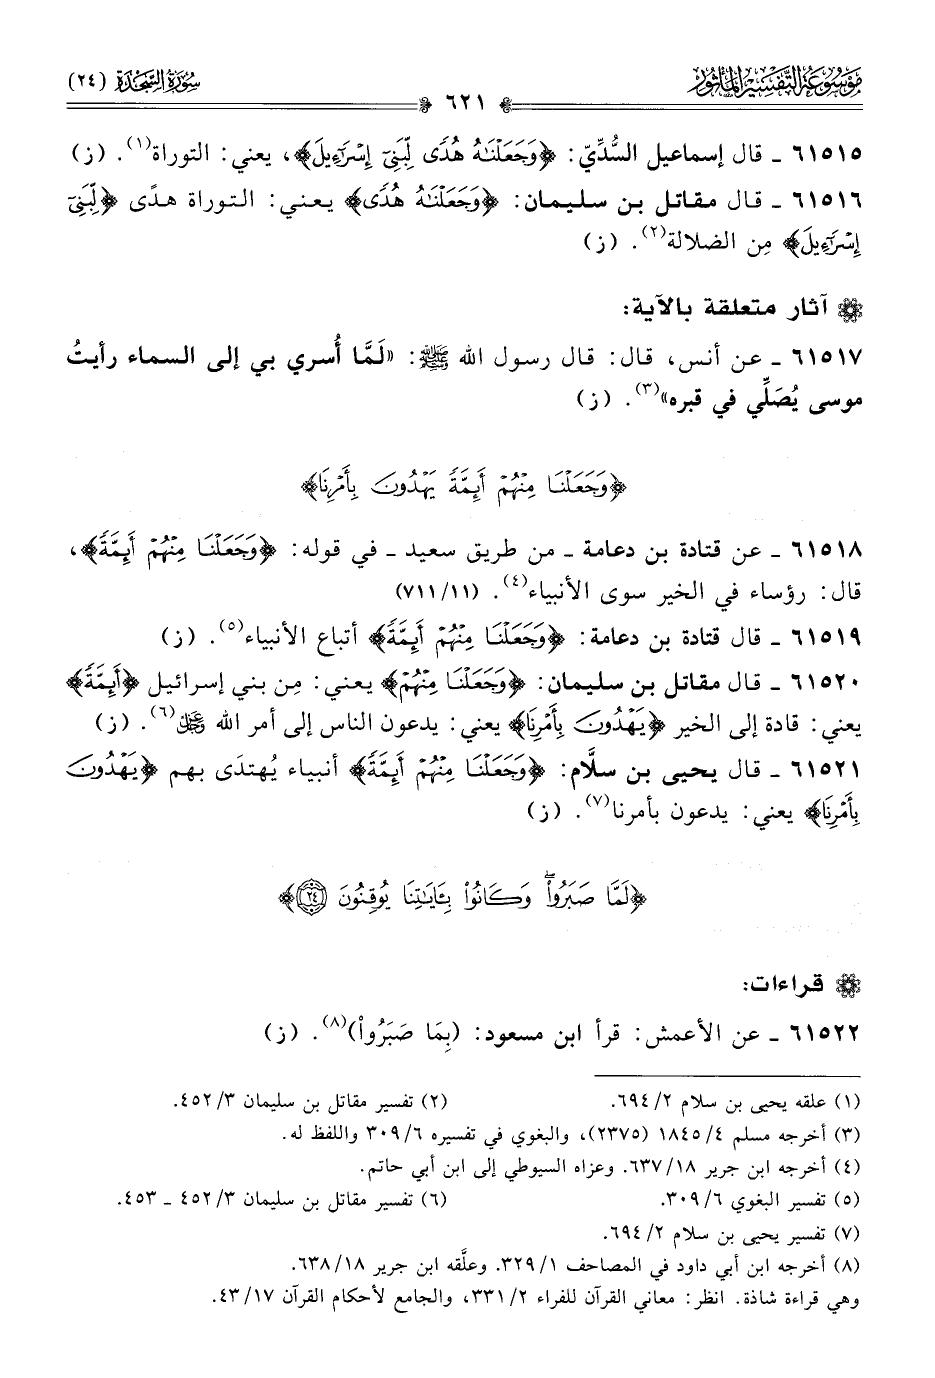 مَوْسُوعَةُ التَّفْسِيرِ الْمَأْثُورِ
سُورَةُ السَّجْدَةِ (٢٤)
٦٢١
٦١٥١٥ ـ قال إسماعيل السُّدِّيّ: ﴿وَجَعَلْنَٰهُ هُدًى لِّبَنِىٓ إِسْرَٰٓءِيلَ﴾، يعني: التوراة(١). (ز)
٦١٥١٦ ـ قال مقاتل بن سليمان: ﴿وَجَعَلْنَٰهُ هُدًى﴾ يعني: التوراة هدًى ﴿لِّبَنِىٓ
إِسْرَٰٓءِيلَ﴾ مِن الضلالة(٢). (ز)
آثار متعلقة بالآية:
٦١٥١٧ ـ عن أنس، قال: قال رسول الله ﷺ: «لَمَّا أُسري بي إلى السماء رأيتُ
موسى يُصَلِّي في قبره»(٣). (ز)
﴿وَجَعَلْنَا مِنْهُمْ أَئِمَّةً يَهْدُونَ بِأَمْرِنَا﴾
٦١٥١٨ ـ عن قتادة بن دعامة ـ من طريق سعيد ـ في قوله: ﴿وَجَعَلْنَا مِنْهُمْ أَئِمَّةً﴾،
قال: رؤساء في الخير سوى الأنبياء(٤). (٧١١/١١)
٦١٥١٩ ـ قال قتادة بن دعامة: ﴿وَجَعَلْنَا مِنْهُمْ أَئِمَّةً﴾ أتباع الأنبياء(٥). (ز)
٦١٥٢٠ ـ قال مقاتل بن سليمان: ﴿وَجَعَلْنَا مِنْهُمْ﴾ يعني: مِن بني إسرائيل ﴿أَئِمَّةً﴾
يعني: قادة إلى الخير ﴿يَهْدُونَ بِأَمْرِنَا﴾ يعني: يدعون الناس إلى أمر الله ﷿(٦). (ز)
٦١٥٢١ ـ قال يحيى بن سلَّام: ﴿وَجَعَلْنَا مِنْهُمْ أَئِمَّةً﴾ أنبياء يُهتدَى بهم ﴿يَهْدُونَ
بِأَمْرِنَا﴾ يعني: يدعون بأمرنا(٧). (ز)
﴿لَمَّا صَبَرُوا۟ ۖ وَكَانُوا۟ بِـَٔايَٰتِنَا يُوقِنُونَ ٢٤﴾
قراءات:
٦١٥٢٢ ـ عن الأعمش: قرأ ابن مسعود: (بِمَا صَبَرُوا۟)(٨). (ز)
(١) علقه يحيى بن سلام ٢/ ٦٩٤. (٢) تفسير مقاتل بن سليمان ٣/ ٤٥٢.
(٣) أخرجه مسلم ٤/ ١٨٤٥ (٢٣٧٥)، والبغوي في تفسيره ٦/ ٣٠٩ واللفظ له.
(٤) أخرجه ابن جرير ١٨/ ٦٣٧. وعزاه السيوطي إلى ابن أبي حاتم.
(٥) تفسير البغوي ٦/ ٣٠٩. (٦) تفسير مقاتل بن سليمان ٣/ ٤٥٢ ـ ٤٥٣.
(٧) تفسير يحيى بن سلام ٢/ ٦٩٤.
(٨) أخرجه ابن أبي داود في المصاحف ١/ ٣٢٩. وعلَّقه ابن جرير ١٨/ ٦٣٨.
وهي قراءة شاذة. انظر: معاني القرآن للفراء ٢/ ٣٣١، والجامع لأحكام القرآن ١٧/ ٤٣.